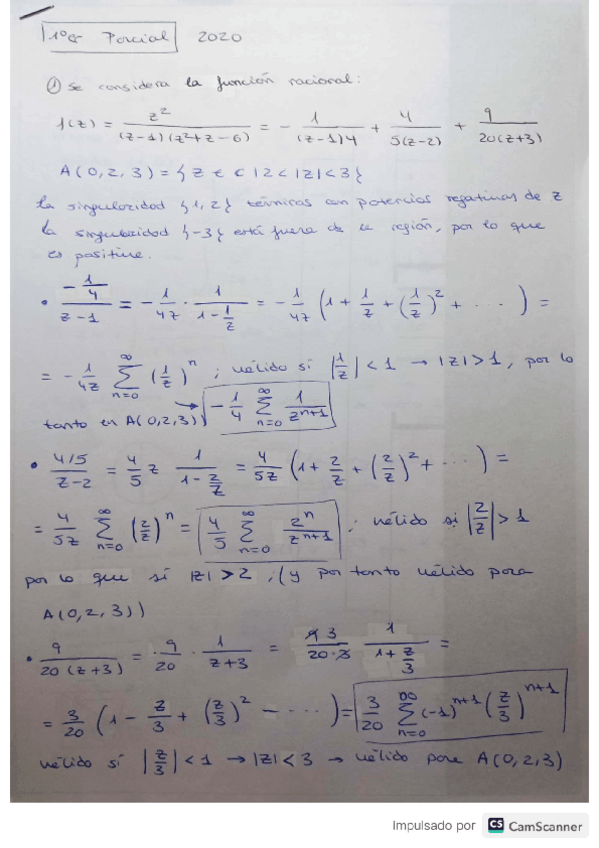 1er Parcial 2020
① Se considera la función racional:
f(z) = z² / ((z-1)(z²+z-6)) = - 1/((z-1)4) + 4/(5(z-2)) + 9/(20(z+3))
A(0,2,3) = { z ∈ C | 2 < |z| < 3 }
La singularidad {1,2} términos con potencias negativas de z
La singularidad {-3} está fuera de la región, por lo que
es positiva.
• (-1/4)/(z-1) = - 1/(4z) · 1/(1 - 1/z) = - 1/(4z) (1 + 1/z + (1/z)² + ····) =
= - 1/(4z) ∑_{n=0}^{∞} (1/z)^n ; válido si |1/z| < 1 → |z| > 1, por lo
tanto en A(0,2,3) → - 1/4 ∑_{n=0}^{∞} 1/z^{n+1}
• (4/5)/(z-2) = 4/5 z 1/(1 - 2/z) = 4/(5z) (1 + 2/z + (2/z)² + ···) =
= 4/(5z) ∑_{n=0}^{∞} (2/z)^n = 4/5 ∑_{n=0}^{∞} 2^n/z^{n+1} ; válido si |2/z| > 1
por lo que si |z| > 2 ,(y por tanto válido para
A(0,2,3))
• 9/(20(z+3)) = 9/20 · 1/(z+3) = 9 3/(20·3) 1/(1 + z/3) =
= 3/20 (1 - z/3 + (z/3)² - ····) = 3/20 ∑_{n=0}^{∞} (-1)^{n+1} (z/3)^{n+1}
válido si |z/3| < 1 → |z| < 3 → válido para A(0,2,3)
Impulsado por CS CamScanner